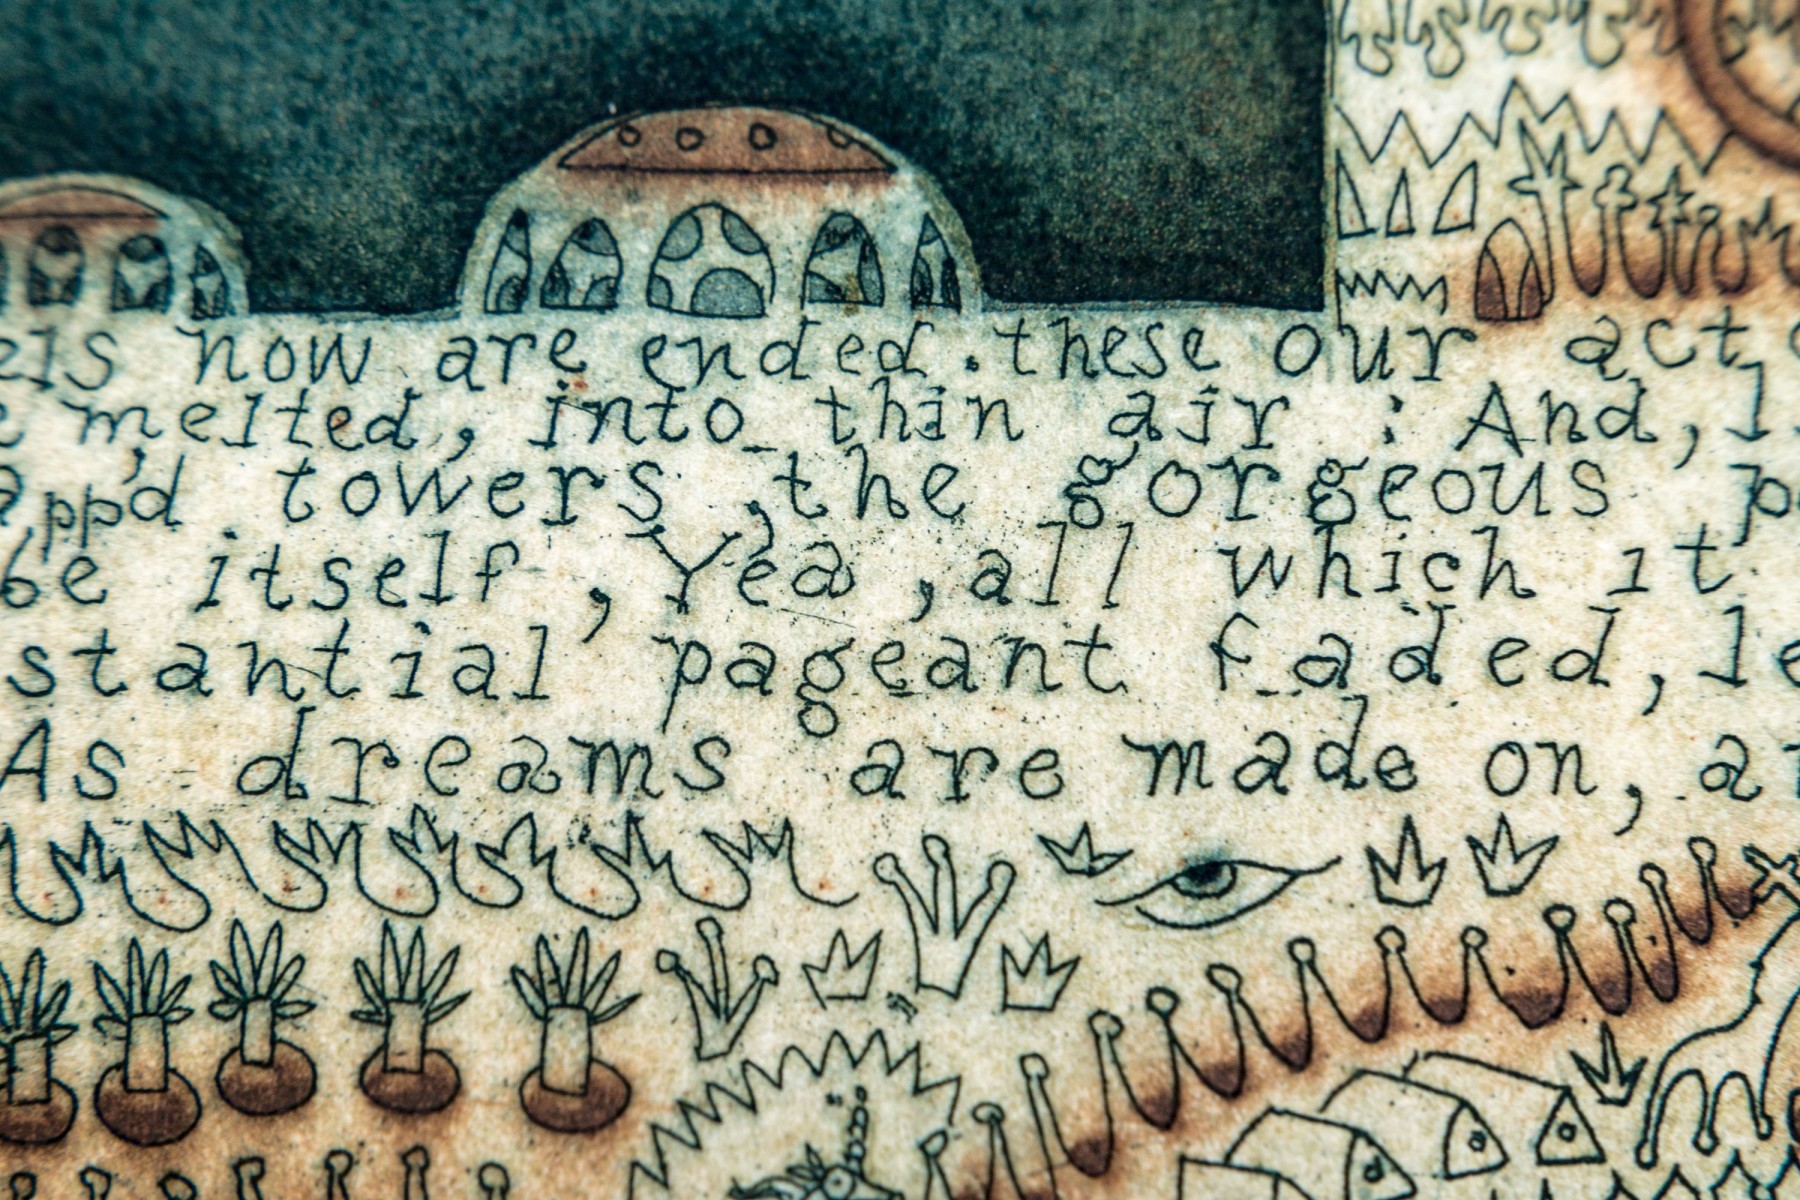 els now are ended. these our act
e melted, into thin air : And, l
app'd towers, the gorgeous p
be itself, Yea, all which it
stantial pageant faded, le
As dreams are made on, a